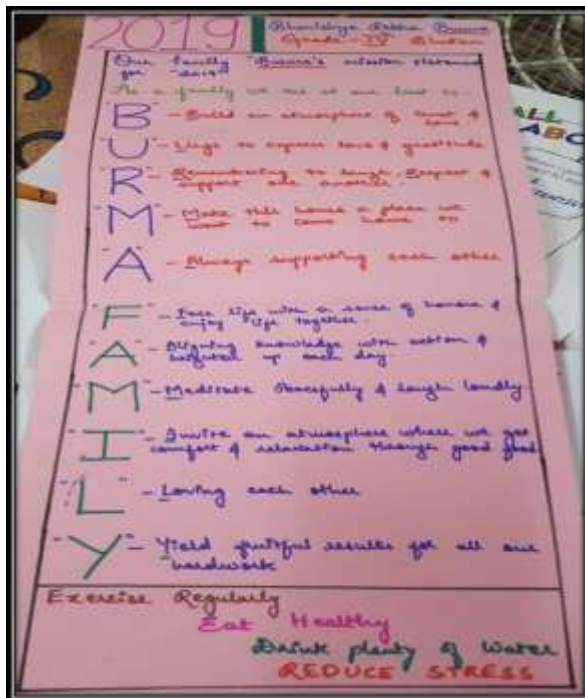 2019
Grade - IV Bhutan
Our family "Burma's" mission statement
for "2019"
As a family we are at our best to -
"B" - Build an atmosphere of trust &
love.
"U" - Urge to express love & gratitude
"R" - Remembering to laugh, Respect &
support one another.
"M" - Make this house a place we
want to come home to
"A" - Always supporting each other
"F" - Face life with a sense of humour &
enjoy life together.
"A" - Aligning knowledge with action &
up each day.
"M" - Meditate Peacefully & laugh loudly
"I" - Invite an atmosphere where we get
comfort & relaxation through good food
"L" - Loving each other
"Y" - Yield fruitful results for all our
hardwork
Exercise Regularly
Eat Healthy
Drink plenty of Water
REDUCE STRESS
ALL
ABC